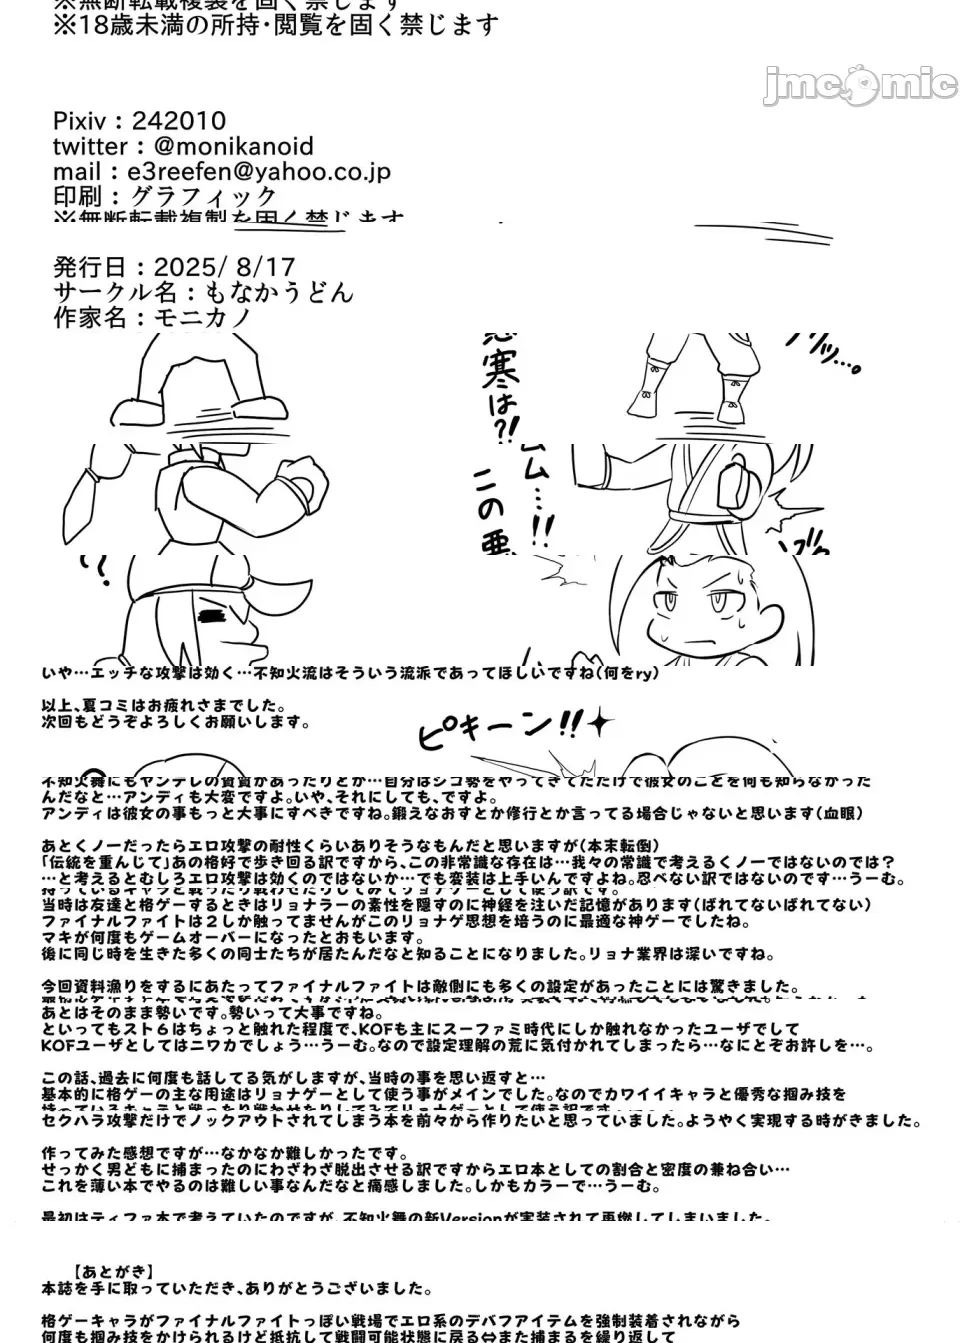 ※無断転載複製を固く禁じます
※18歳未満の所持・閲覧を固く禁じます
jmcomic
Pixiv：242010
twitter：@monikanoid
mail：e3reefen@yahoo.co.jp
印刷：グラフィック
※無断転載複製を固く禁じます
発行日：2025/ 8/17
サークル名：もなかうどん
作家名：モニカノ
悪寒は?!
ムム…!!
この悪
いや…エッチな攻撃は効く…不知火流はそういう流派であってほしいですね(何をry)
以上、夏コミはお疲れさまでした。
次回もどうぞよろしくお願いします。
ピキーン!!
不知火舞にもヤンデレの資質があったりとか…自分はシコ勢をやってきてただけで彼女のことを何も知らなかった
んだなと…アンディも大変ですよ。いや、それにしても、ですよ。
アンディは彼女の事もっと大事にすべきですね。鍛えなおすとか修行とか言ってる場合じゃないと思います(血眼)
あとくノーだったらエロ攻撃の耐性くらいありそうなもんだと思いますが(本末転倒)
「伝統を重んじて」あの格好で歩き回る訳ですから、この非常識な存在は…我々の常識で考えるくノーではないのでは？
…と考えるとむしろエロ攻撃は効くのではないか…でも変装は上手いんですよね。忍べない訳ではないのです…うーむ。
持っているキャラと戦ったり戦わせたりしてみてリョナゲーとして使う訳です。
当時は友達と格ゲーするときはリョナラーの素性を隠すのに神経を注いだ記憶があります(ばれてないばれてない)
ファイナルファイトは２しか触ってませんがこのリョナゲ思想を培うのに最適な神ゲーでしたね。
マキが何度もゲームオーバーになったとおもいます。
後に同じ時を生きた多くの同士たちが居たんだなと知ることになりました。リョナ業界は深いですね。
今回資料漁りをするにあたってファイナルファイトは敵側にも多くの設定があったことには驚きました。
あとはそのまま勢いです。勢いって大事ですね。
といってもスト６はちょっと触れた程度で、KOFも主にスーファミ時代にしか触れなかったユーザでして
KOFユーザとしてはニワカでしょう…うーむ。なので設定理解の荒に気付かれてしまったら…なにとぞお許しを…。
この話、過去に何度も話してる気がしますが、当時の事を思い返すと…
基本的に格ゲーの主な用途はリョナゲーとして使う事がメインでした。なのでカワイイキャラと優秀な掴み技を
持っているキャラと戦ったり戦わせたりしてみてリョナゲーとして使う訳です。
セクハラ攻撃だけでノックアウトされてしまう本を前々から作りたいと思っていました。ようやく実現する時がきました。
作ってみた感想ですが…なかなか難しかったです。
せっかく男どもに捕まったのにわざわざ脱出させる訳ですからエロ本としての割合と密度の兼ね合い…
これを薄い本でやるのは難しい事なんだなと痛感しました。しかもカラーで…うーむ。
最初はティファ本で考えていたのですが、不知火舞の新Versionが実装されて再燃してしまいました。
【あとがき】
本誌を手に取っていただき、ありがとうございました。
格ゲーキャラがファイナルファイトっぽい戦場でエロ系のデバフアイテムを強制装着されながら
何度も掴み技をかけられるけど抵抗して戦闘可能状態に戻る⇔また捕まるを繰り返して